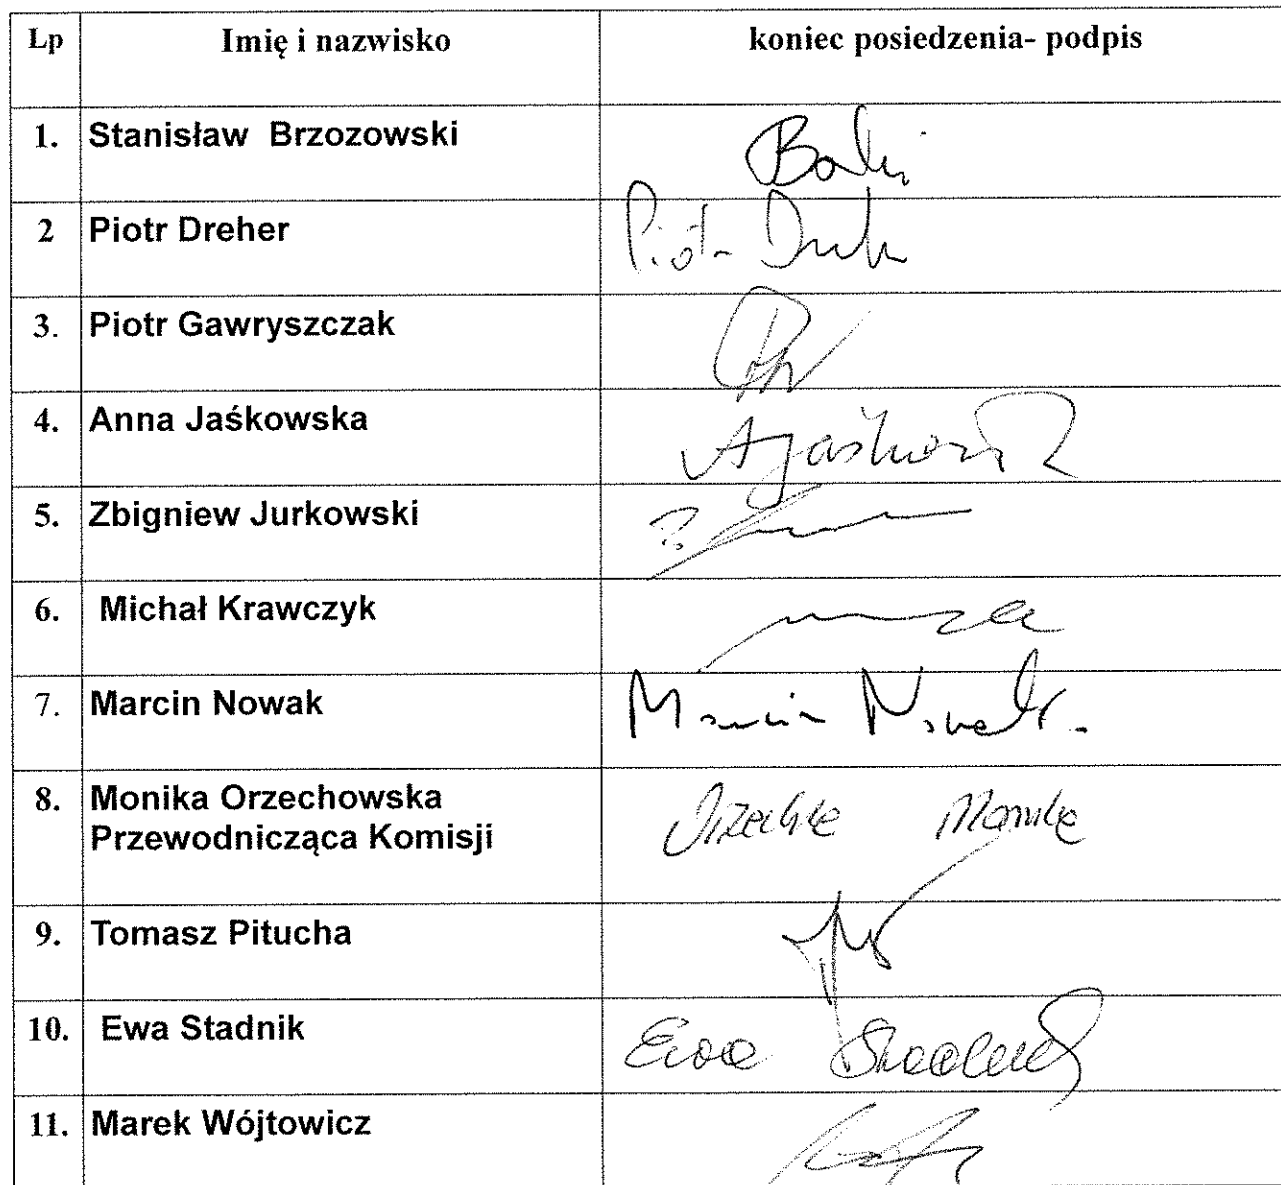 Lp Imię i nazwisko koniec posiedzenia- podpis
1. Stanisław Brzozowski
2 Piotr Dreher Piotr
3. Piotr Gawryszczak
4. Anna Jaśkowska
5. Zbigniew Jurkowski
6. Michał Krawczyk
7. Marcin Nowak Marcin Nowak
8. Monika Orzechowska
Przewodnicząca Komisji
9. Tomasz Pitucha
10. Ewa Stadnik Ewa Stadnik
11. Marek Wójtowicz